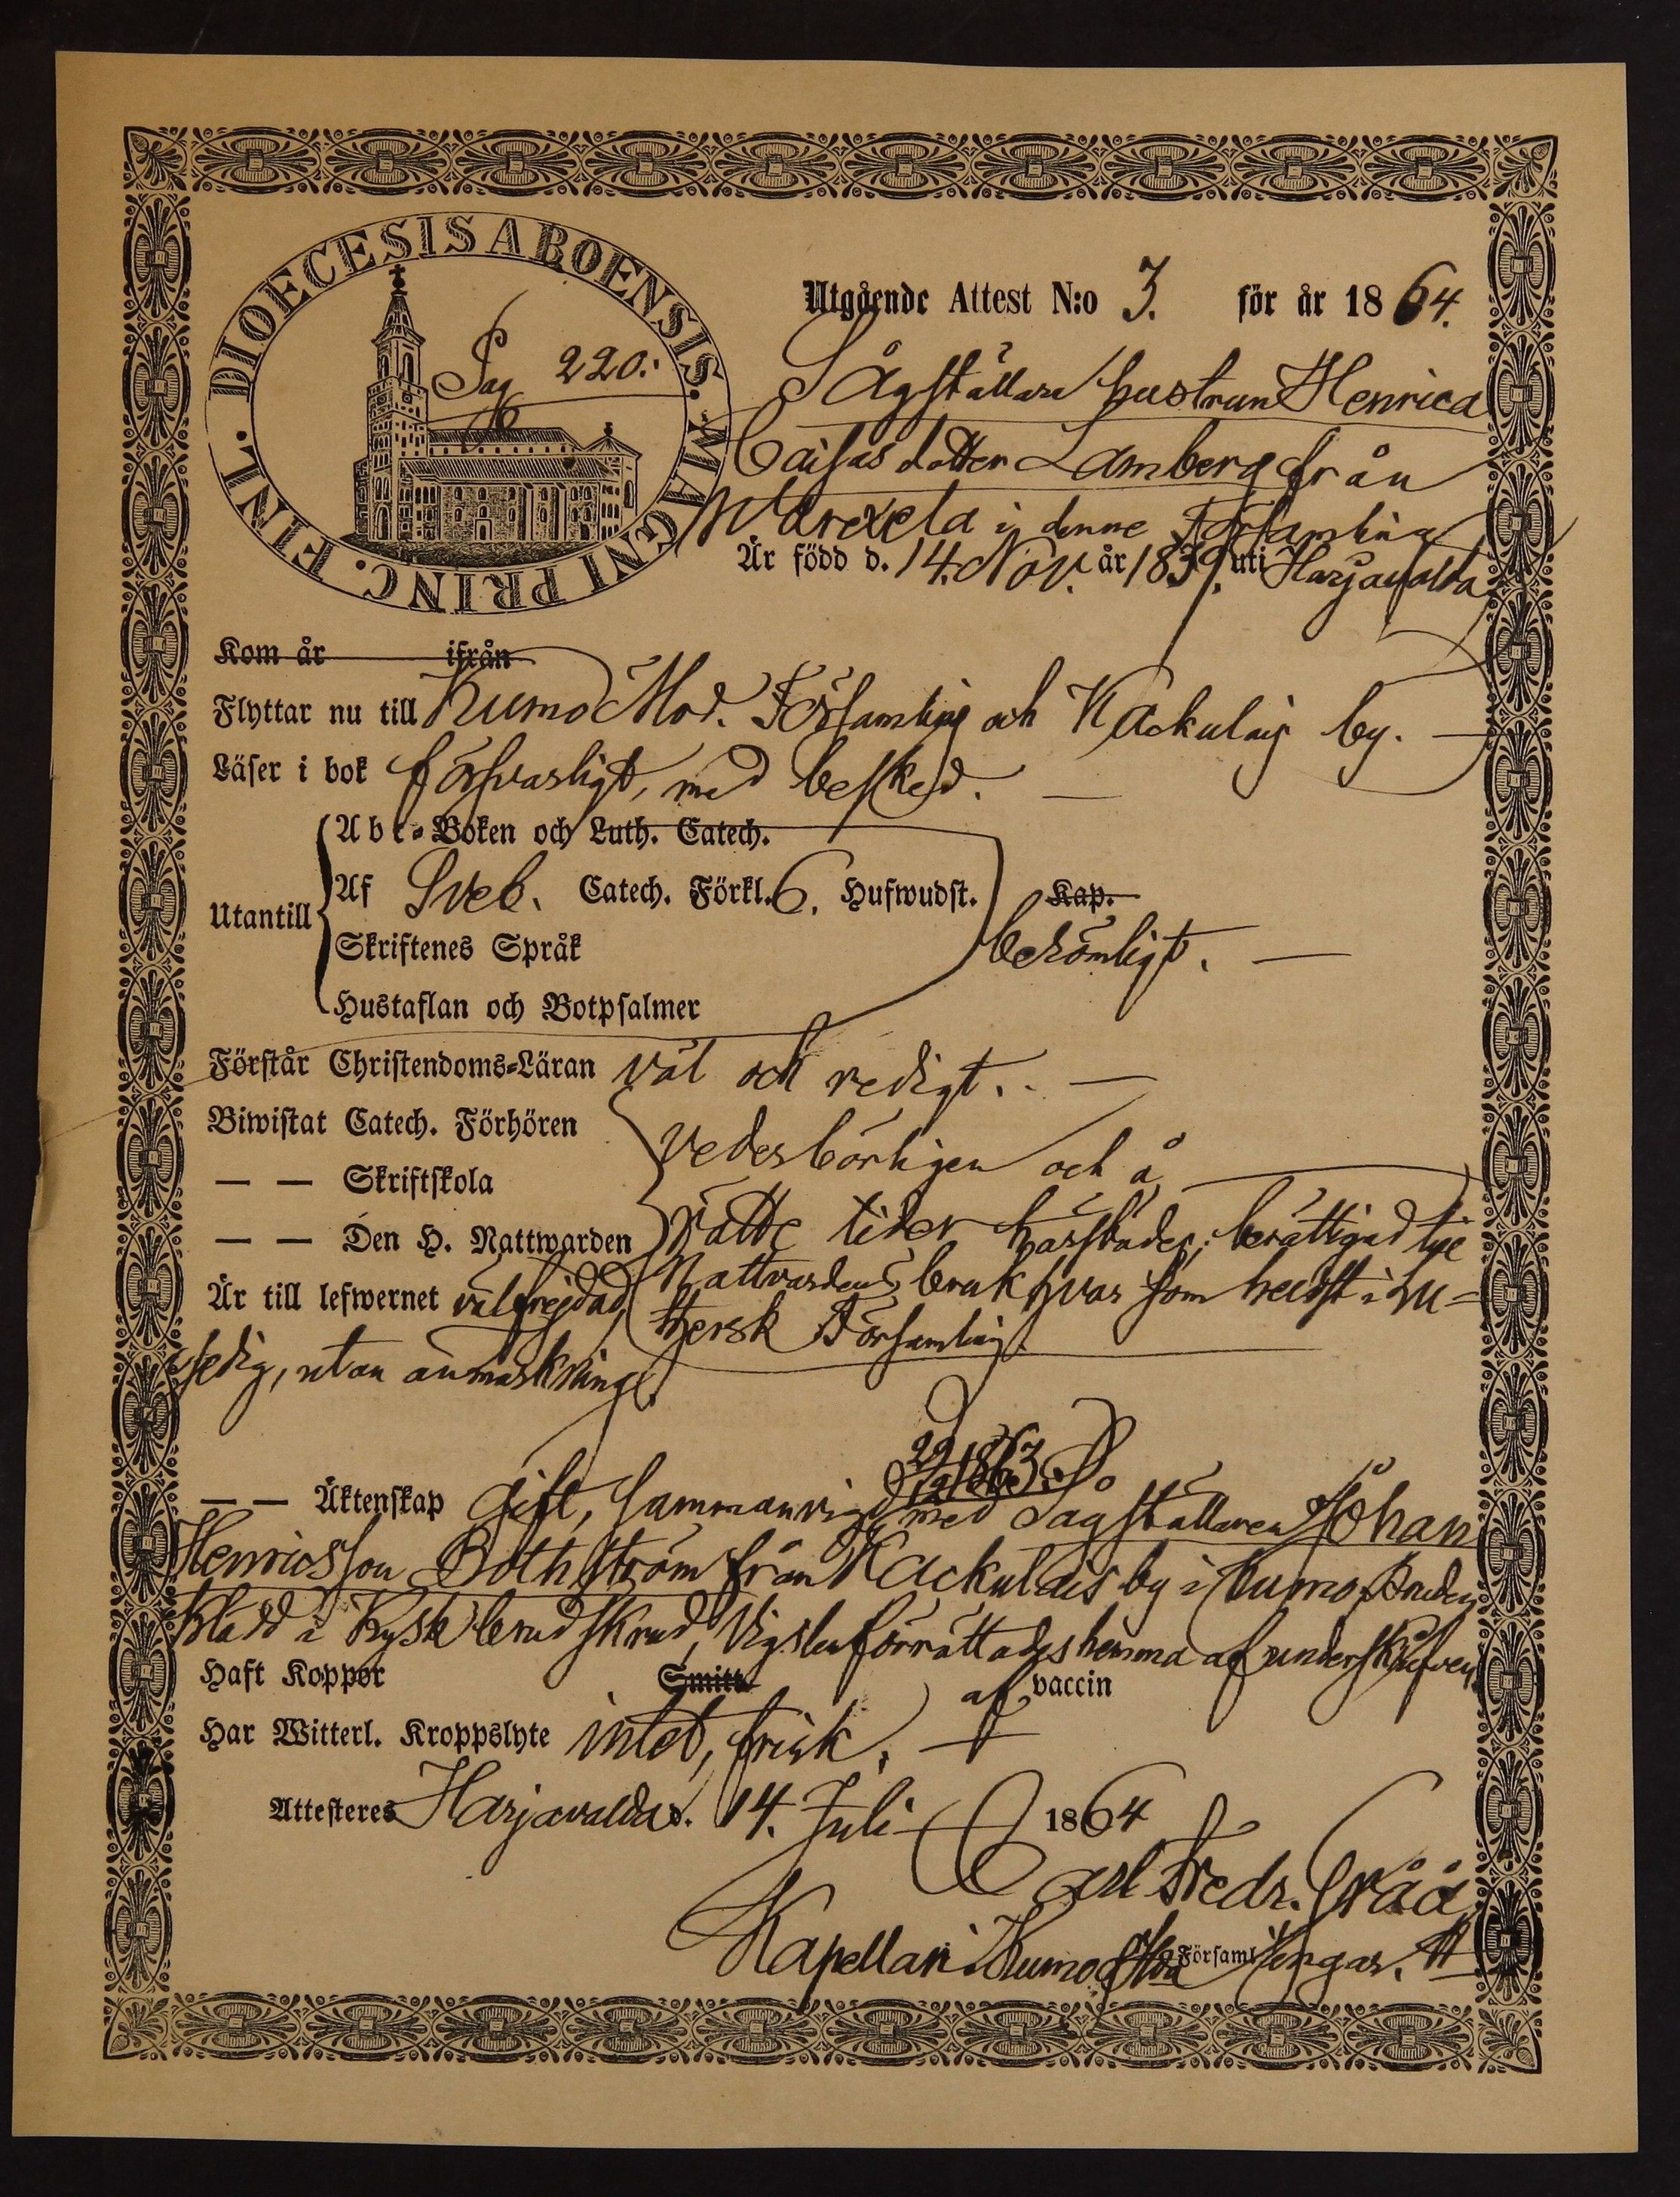 DIOECESIS ABOENSIS. MAGNI PRINC. FINL.
Pag 220.
Utgående Attest N:o 3. för år 1864.
Sågställare hustrun Henrica
Caisas dotter Lamberg från
i denne Församling
Är född d. 14. Nov. år 1839. uti Harjavalda
Kom år ifrån
Flyttar nu till Kumo Mod. Församling och Kackulais by. —
Läser i bok försvarligt, med besked. —
Abc-Boken och Luth. Catech.
Utantill
Af Sveb. Catech. Förkl. 6. Hufwudst. Kap.
Skriftenes Språk
berömligt. —
Hustaflan och Botpsalmer
Förstår Christendoms-Läran väl och redigt. —
Biwistat Catech. Förhören
vederbörligen och å
— — Skriftskola
— — Den H. Nattwarden rätte tider härstädes; berättigad till
Nattvardens bruk hvar som heldst i Lu-
Är till lefwernet välfrejdad,
thersk Församling.
sedig, utan anmärkning.
— — Äktenskap Gift, sammanvigd 1863 med Sågställaren Johan
Henricsson Bothström från Kackulais by i Kumo, Bruden
klädd i Kysk brudskrud, Vigseln förrättades hemma af underskrifven.
Haft Koppor Smitt af vaccin
Har Witterl. Kroppslyte intet, frisk. —
Attesteres Harjavalda d. 14. Juli 1864
Carl Fredr.
Kapellan i Kumo Församl